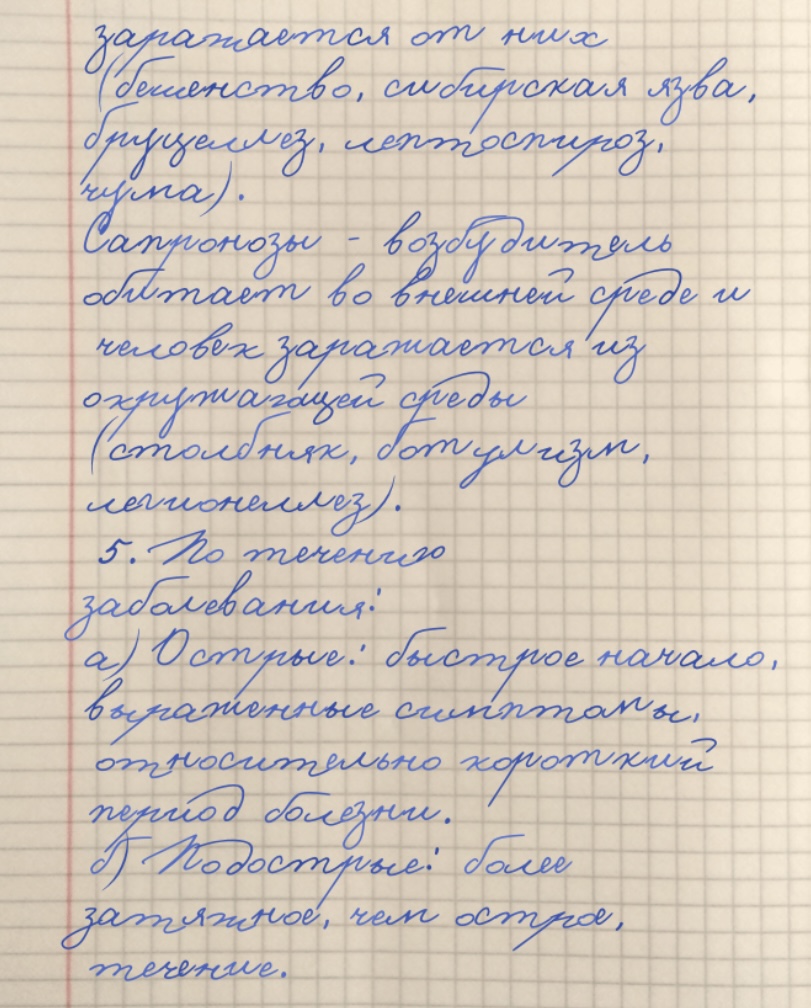 заражается от них
(бешенство, сибирская язва,
бруцеллез, лептоспироз,
чума).
Сапронозы - возбудитель
обитает во внешней среде и
человек заражается из
окружающей среды
(столбняк, ботулизм,
легионеллез).
5. По течению
заболевания:
а) Острые: быстрое начало,
выраженные симптомы,
относительно короткий
период болезни.
б) Подострые: более
затяжное, чем острое,
течение.